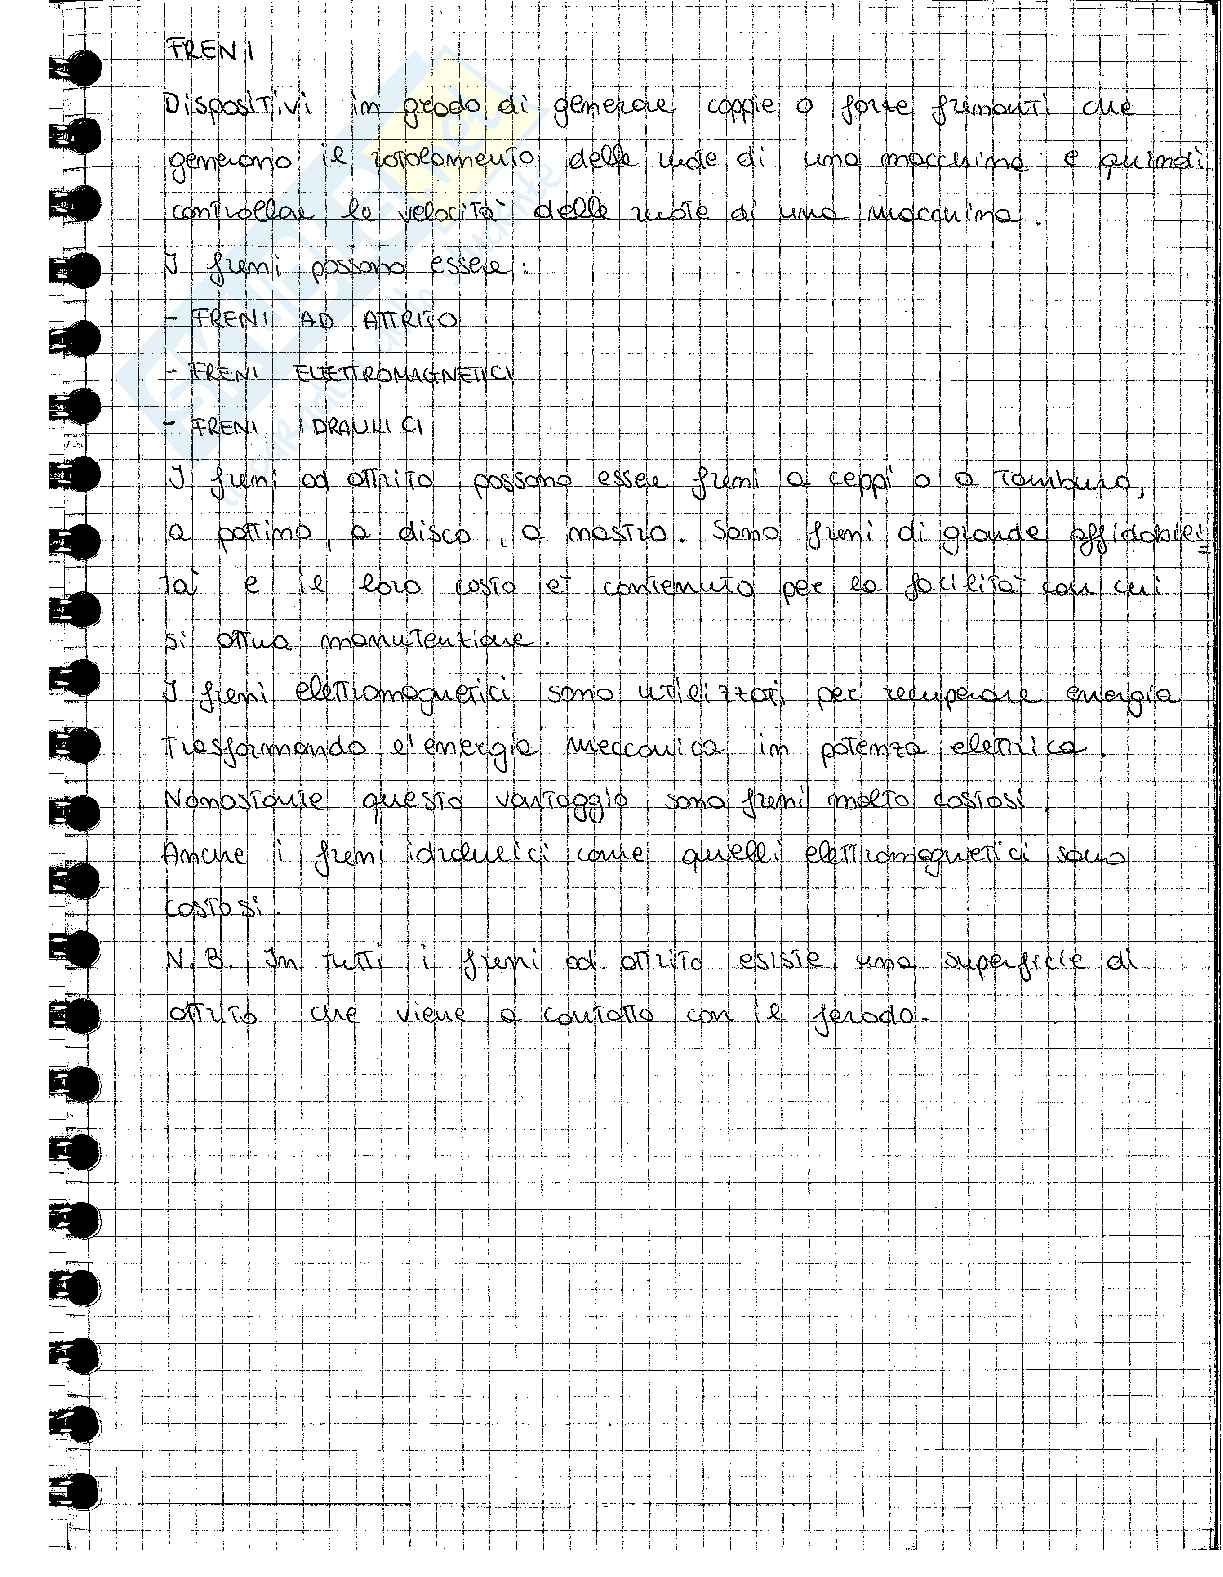 FRENI
Dispositivi in grado di generare coppie o forze frenanti che
generano il rotolamento delle ruote di una macchina e quindi
controllare la velocità delle ruote di una macchina.
I freni possono essere:
- FRENI AD ATTRITO
- FRENI ELETTROMAGNETICI
- FRENI IDRAULICI
I freni ad attrito possono essere freni a ceppi o a tamburo,
a pattino, a disco, a nastro. Sono freni di grande affidabili=
tà e il loro costo è contenuto per la facilità con cui
si attua manutenzione.
I freni elettromagnetici sono utilizzati per recuperare energia
trasformando l'energia meccanica in potenza elettrica.
Nonostante questo vantaggio sono freni molto costosi.
Anche i freni idraulici come quelli elettromagnetici sono
costosi.
N.B. In tutti i freni ad attrito esiste una superficie di
attrito che viene a contatto con il ferodo.